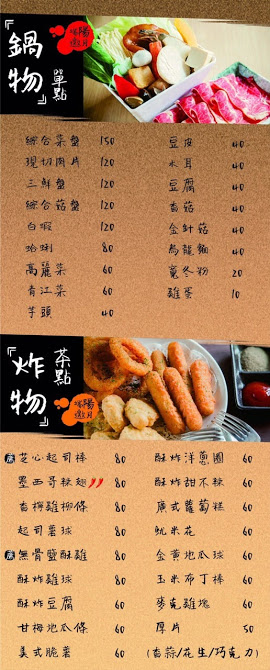 『鍋物』單點
陽月
綜合菜盤 150
現切肉片 120
三鮮盤 120
綜合菇盤 120
白蝦 120
蛤蜊 80
高麗菜 60
青江菜 60
芋頭 40
豆皮 40
木耳 40
豆腐 40
香菇 40
金針菇 40
烏龍麵 40
寬冬粉 20
雞蛋 10
『炸物』茶點
陽月
芝心起司棒 80
墨西哥辣翅 80
香檸雞柳條 80
起司薯球 80
無骨鹽酥雞 80
酥炸雞球 80
酥炸豆腐 60
甘梅地瓜條 60
美式脆薯 60
酥炸洋蔥圈 60
酥炸甜不辣 60
廣式蘿蔔糕 60
魷米花 60
金黃地瓜球 60
玉米布丁棒 60
麥克雞塊 60
厚片 50
(香蒜/花生/巧克力)